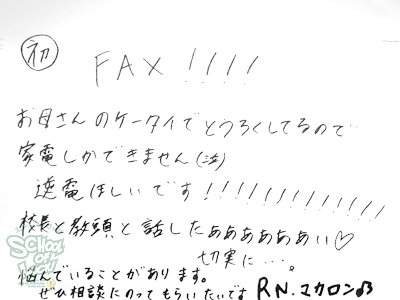 初
FAX!!!!
お母さんのケータイでとうろくしてるので
家電しかできません(泣)
逆電ほしいです!!!!!!!!!!!!!
校長と教頭と話したぁぁぁぁぁぁい♡
切実に・・・。
悩んでいることがあります。
ぜひ相談にのってもらいたいです RN.マカロン♫
SCHOOL OF